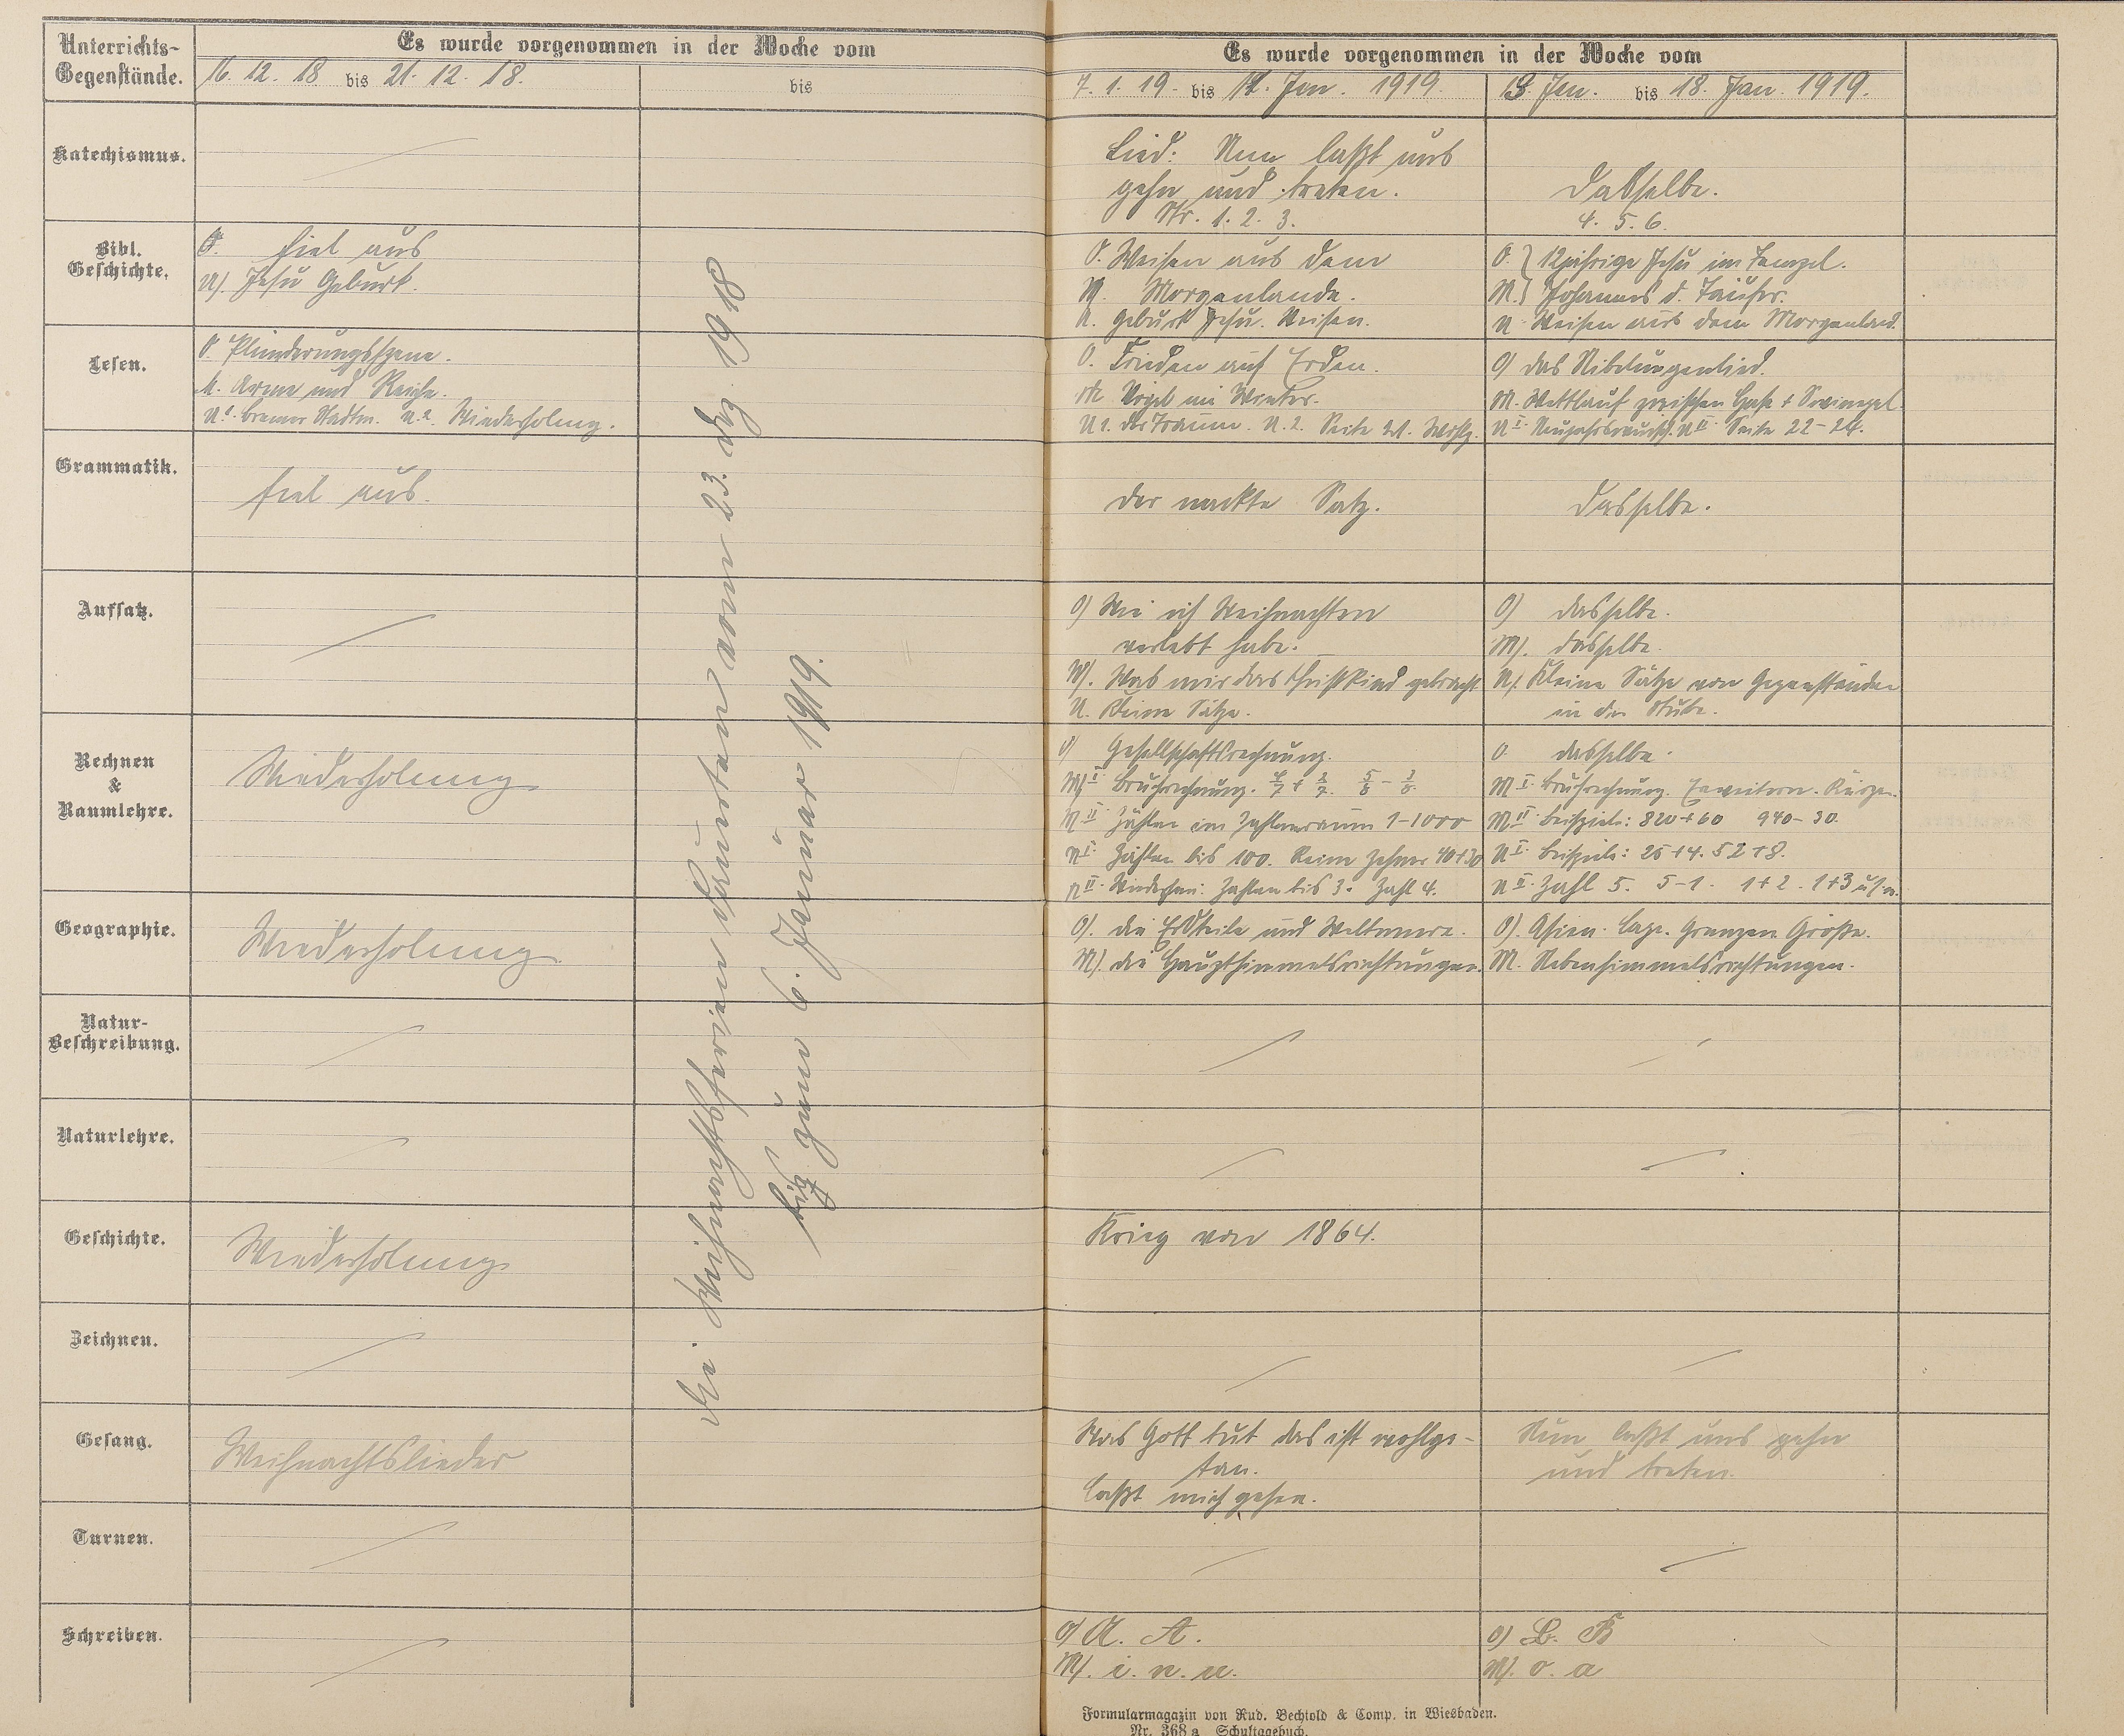 Unterrichts-
Gegenstände.
Es wurde vorgenommen in der Woche vom
16. 12. 18 bis 21. 12. 18.
bis
Katechismus.
Bibl.
Geschichte.
O. fiel aus
U). Jesu Geburt.
Lesen.
O. Plünderungsszene.
M. Arme und Reiche.
U.1. Bremer Stadtm. U.2. Wiederholung.
Grammatik.
fiel aus.
Aufsatz.
Rechnen
&
Raumlehre.
Wiederholung
Geographie.
Wiederholung
Natur-
Beschreibung.
Naturlehre.
Geschichte.
Wiederholung
Zeichnen.
Gesang.
Weihnachtslieder
Turnen.
Schreiben.
Die Weihnachtsferien dauerten vom 23. Dez 1918
bis zum 6. Januar 1919.
Es wurde vorgenommen in der Woche vom
7. 1. 19. bis 11. Jan. 1919.
Lied: Nun laßt uns
gehn und treten.
Str. 1. 2. 3.
O. Weisen aus dem
M. Morgenlande.
U. Geburt Jesu. Weisen.
O. Frieden auf Erden.
M. Vögel im Winter.
U1. Der Traum. U.2. Seite 21.
Der nackte Satz.
O) Wie ich Weihnachten
verlebt habe.
M). Was mir das Christkind gebracht
U. Kleine Sätze.
O) Gesellschaftsrechnung.
M) I. Bruchrechnung. 4/7 + 2/7. 5/8 - 3/8.
M II. Zählen im Zahlenraum 1-1000
U I. Zählen bis 100. Reine Zehner 40+30
U II. Wiederhol: Zahlen bis 3. Zahl 4.
O). Die Erdteile und Weltmeere.
M). Die Haupthimmelsrichtungen.
Krieg von 1864.
Was Gott tut das ist wohlge-
tan.
Laßt mich gehen.
O) A. A.
M). i. n. u.
13. Jan. bis 18. Jan. 1919.
Dasselbe.
4. 5. 6.
O. } 12jährige Jesu im Tempel.
M. } Johannes d. Täufer.
U. Weisen aus dem Morgenland.
O) Das Nibelungenlied.
M. Wettlauf zwischen Hase + Swinegel.
U I. Neujahrswunsch. U II. Seite 22-24.
Dasselbe.
O) dasselbe.
M). dasselbe.
U). Kleine Sätze von Gegenständen
in der Stube.
O. dasselbe.
M I. Bruchrechnung. Erweitern. Kürzen.
M II. Beispiele: 820+60 940-30.
U I. Beispiele: 25+4. 52+8.
U II. Zahl 5. 5-1. 1+2. 1+3 u.s.w.
O). Asien. Lage. Grenzen. Größe.
M. Nebenhimmelsrichtungen.
Nun laßt uns gehn
und treten.
O) B. B
M). o. a
Formularmagazin von Rud. Bechtold & Comp. in Wiesbaden.
Nr. 368 a Schultagebuch.